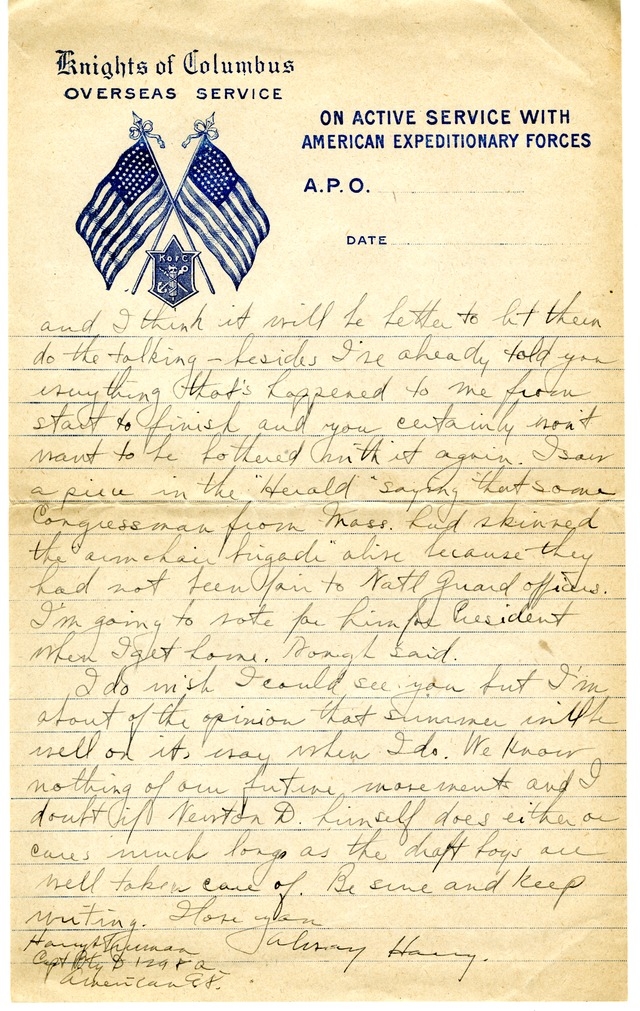 Knights of Columbus
OVERSEAS SERVICE
ON ACTIVE SERVICE WITH
AMERICAN EXPEDITIONARY FORCES
A.P.O.
DATE
K of C
and I think it will be better to let them
do the talking – besides I've already told you
everything that's happened to me from
start to finish and you certainly won't
want to be bothered with it again. I saw
a piece in the "Herald" saying that some
Congressman from Mass. had skinned
the "armchair brigade" alive because they
had not been fair to Natl Guard officers.
I'm going to vote for him for President
when I get home. Enough said.
I do wish I could see you but I'm
about of the opinion that summer will be
well on its way when I do. We know
nothing of our future movements and I
doubt if Newton D. himself does either or
cares much long as the draft boys are
well taken care of. Be sure and keep
writing. I love you
Always Harry.
Harry S Truman
Capt Bty D 129 F A
American E.F.